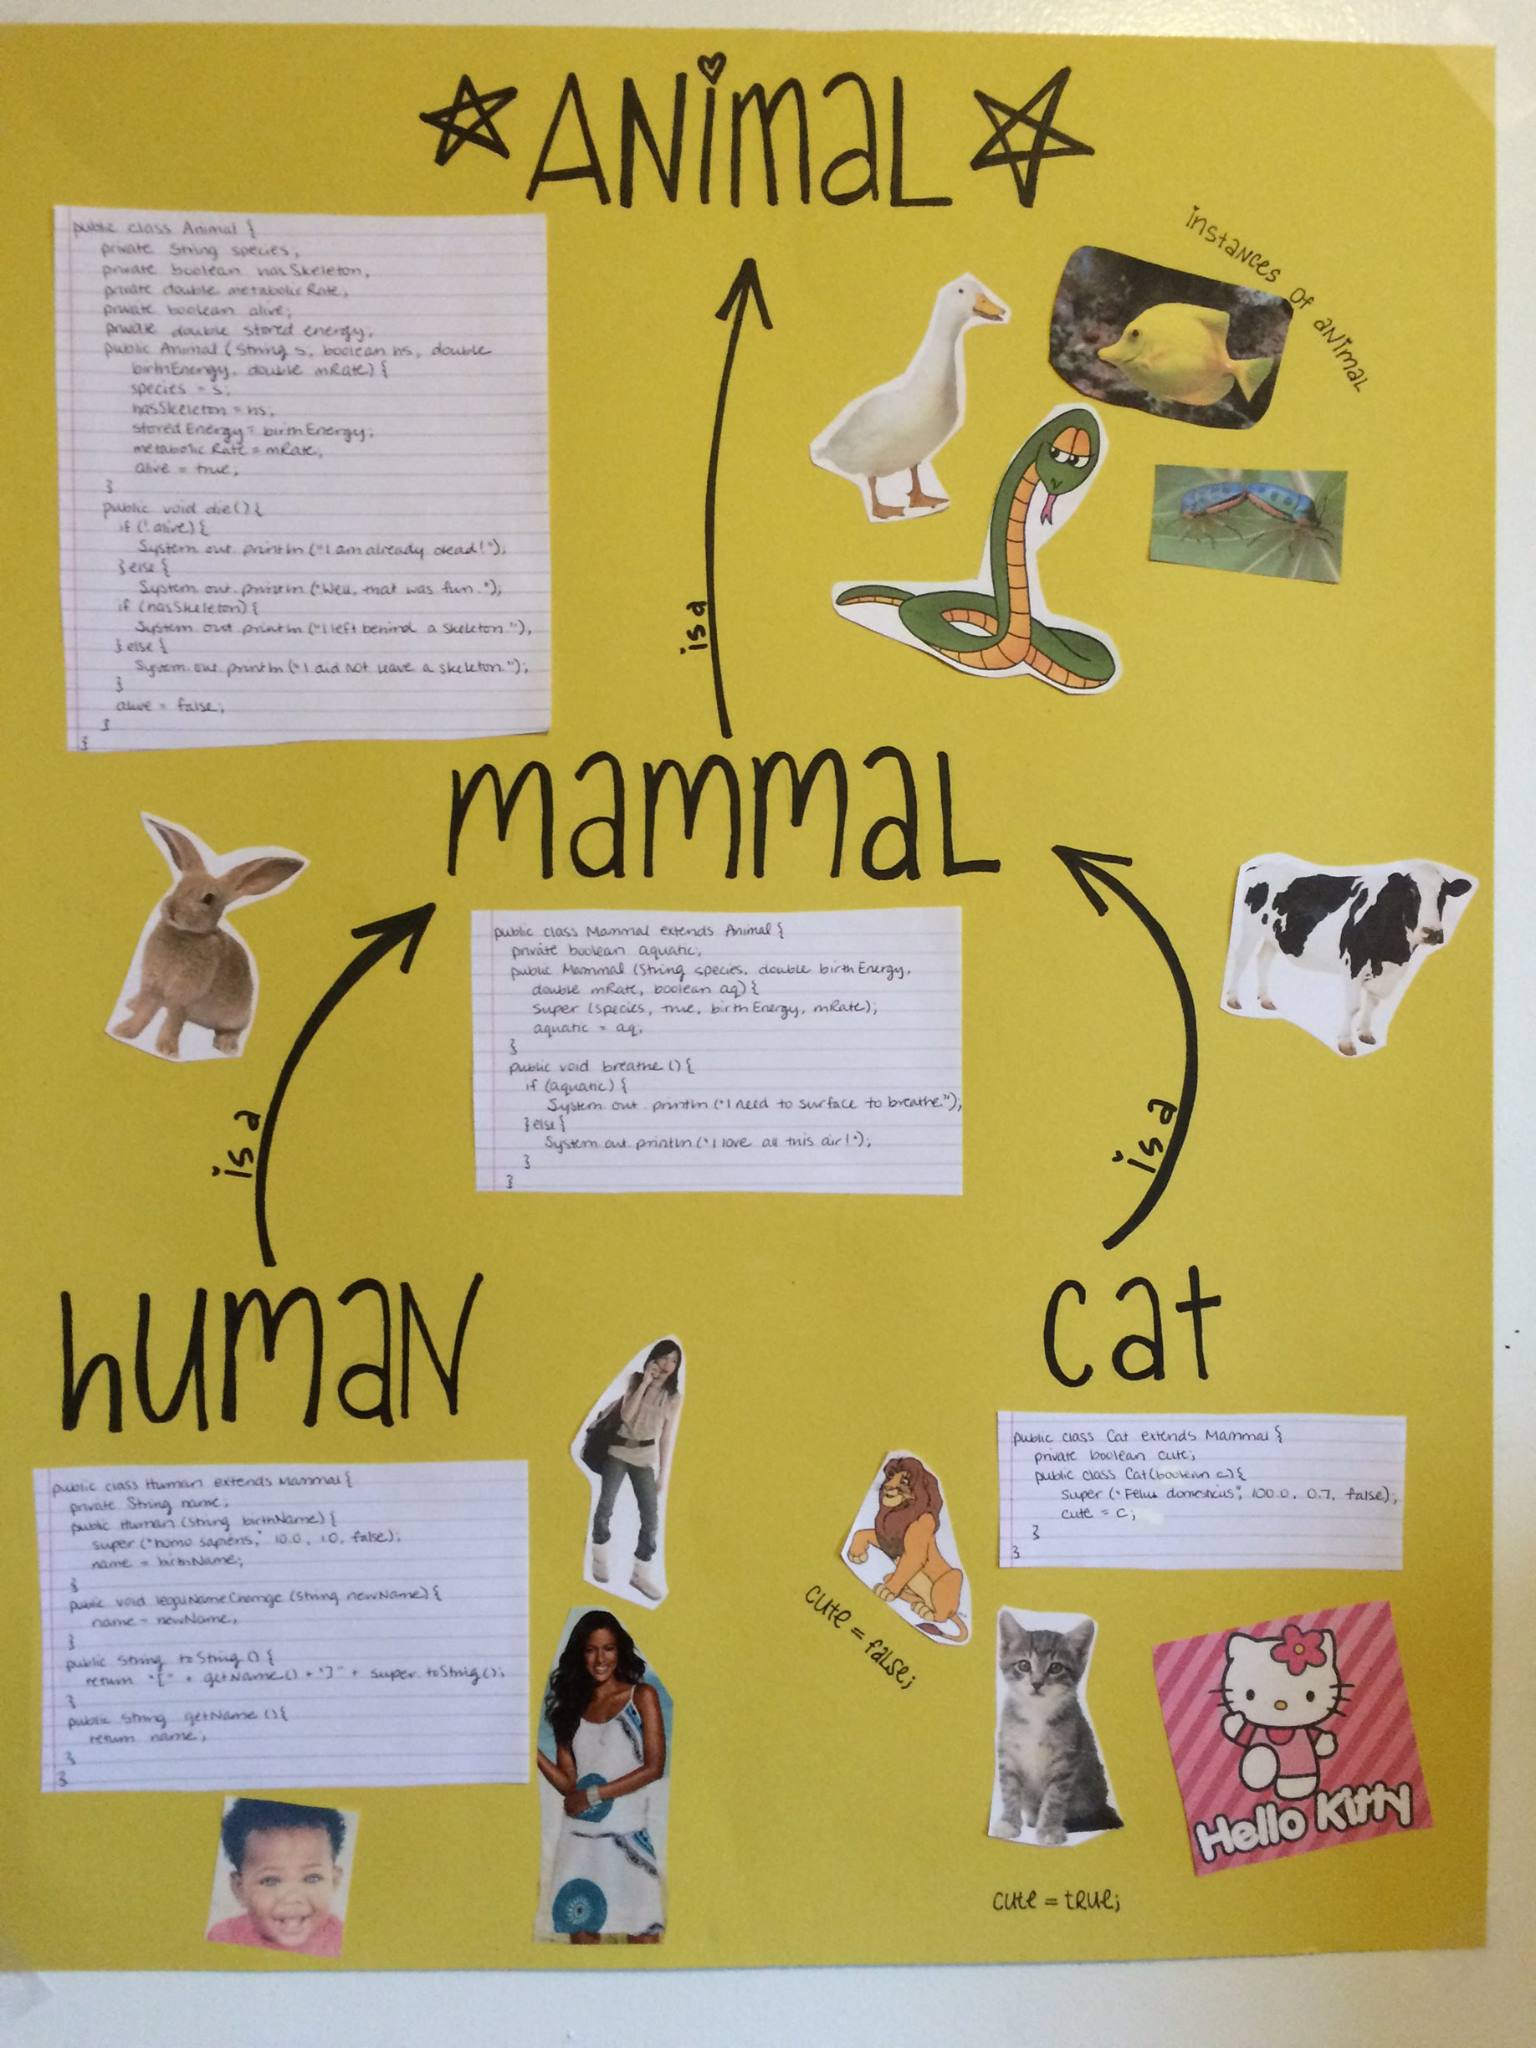 ANimaL
public class Animal {
private String species;
private boolean hasSkeleton;
private double metabolicRate;
private boolean alive;
private double stored energy;
public Animal (String s, boolean hs, double
birthEnergy, double mRate) {
species = s;
hasSkeleton = hs;
stored Energy = birthEnergy;
metabolic Rate = mRate;
alive = true;
}
public void die() {
if (!alive) {
System.out.println("I am already dead!");
} else {
System.out.println("Well, that was fun.");
if (hasSkeleton) {
System.out.println("I left behind a skeleton.");
} else {
System.out.println("I did not leave a skeleton.");
}
alive = false;
}
}
instances of animal
is a
mammaL
public class Mammal extends Animal {
private boolean aquatic;
public Mammal (String species, double birthEnergy,
double mRate, boolean aq) {
super (species, true, birthEnergy, mRate);
aquatic = aq;
}
public void breathe () {
if (aquatic) {
System.out.println("I need to surface to breathe");
} else {
System.out.println("I love all this air!");
}
}
is a
is a
humaN
public class Human extends Mammal {
private String name;
public Human (String birthName) {
super ("homo sapiens," 10.0, 1.0, false);
name = birthName;
}
public void legalNameChange (String newName) {
name = newName;
}
public String toString () {
return "[" + getName() + "]" + super.toString();
}
public String getName () {
return name;
}
}
cat
public class Cat extends Mammal {
private boolean cute;
public class Cat (boolean c) {
super ("Felus domesticus", 100.0, 0.7, false);
cute = c;
}
}
cute = false;
Hello Kitty
cute = true;